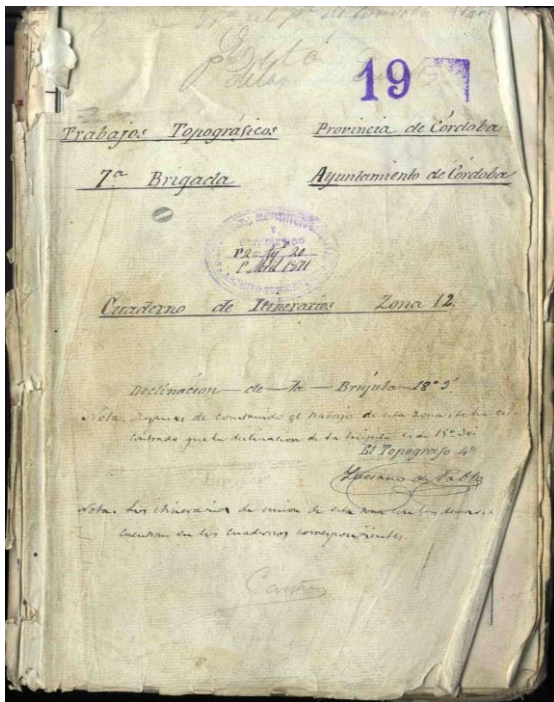 19
Trabajos Topográficos Provincia de Córdoba
7ª Brigada Ayuntamiento de Córdoba
Cuaderno de Itinerarios Zona 12.
Declinación de la Brújula 18° 3'
Nota. Despues de construido el trabajo de esta zona, se ha en-
contrado que la declinacion de la brujula es de
El Topografo 4º
Luciano de Pablo
Nota. Los itinerarios de union de esta zona con las demas, se
encuentran en los cuadernos correspondientes.